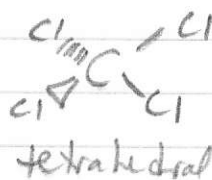 Cl Cl
C
Cl Cl
tetrahedral